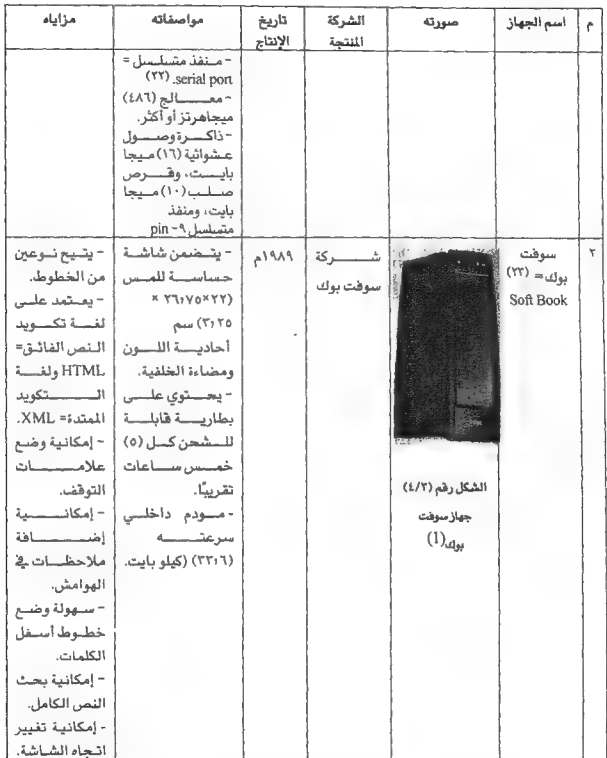 م
اسم الجهاز
صورته
الشركة
المنتجة
تاريخ
الإنتاج
مواصفاته
مزاياه
- منفذ متسلسل =
serial port. (٢٢)
- معالج (٤٨٦)
ميجاهرتز أو أكثر.
- ذاكرة وصول
عشوائية (١٦) ميجا
بايت، وقرص
صلب (١٠) ميجا
بايت، ومنفذ
متسلسل ٩- pin
٢
سوفت
بوك= (٢٣)
Soft Book
الشكل رقم (٤/٣)
جهاز سوفت
بوك(1)
شركة
سوفت بوك
١٩٨٩م
- يتضمن شاشة
حساسة للمس
(٢٢×٢٦،٧٥ ×
٣،٢٥) سم
أحادية اللون
ومضاءة الخلفية.
- يحتوي على
بطارية قابلة
للشحن كل (٥)
خمس ساعات
تقريبًا.
- مودم داخلي
سرعته
(٣٣،٦) (كيلو بايت.
- يتيح نوعين
من الخطوط.
- يعتمد على
لغة تكويد
النص الفائق=
HTML ولغة
التكويد
الممتدة= XML.
- إمكانية وضع
علامات
التوقف.
- إمكانية
إضافة
ملاحظات في
الهوامش.
- سهولة وضع
خطوط أسفل
الكلمات.
- إمكانية بحث
النص الكامل.
- إمكانية تغيير
اتجاه الشاشة.